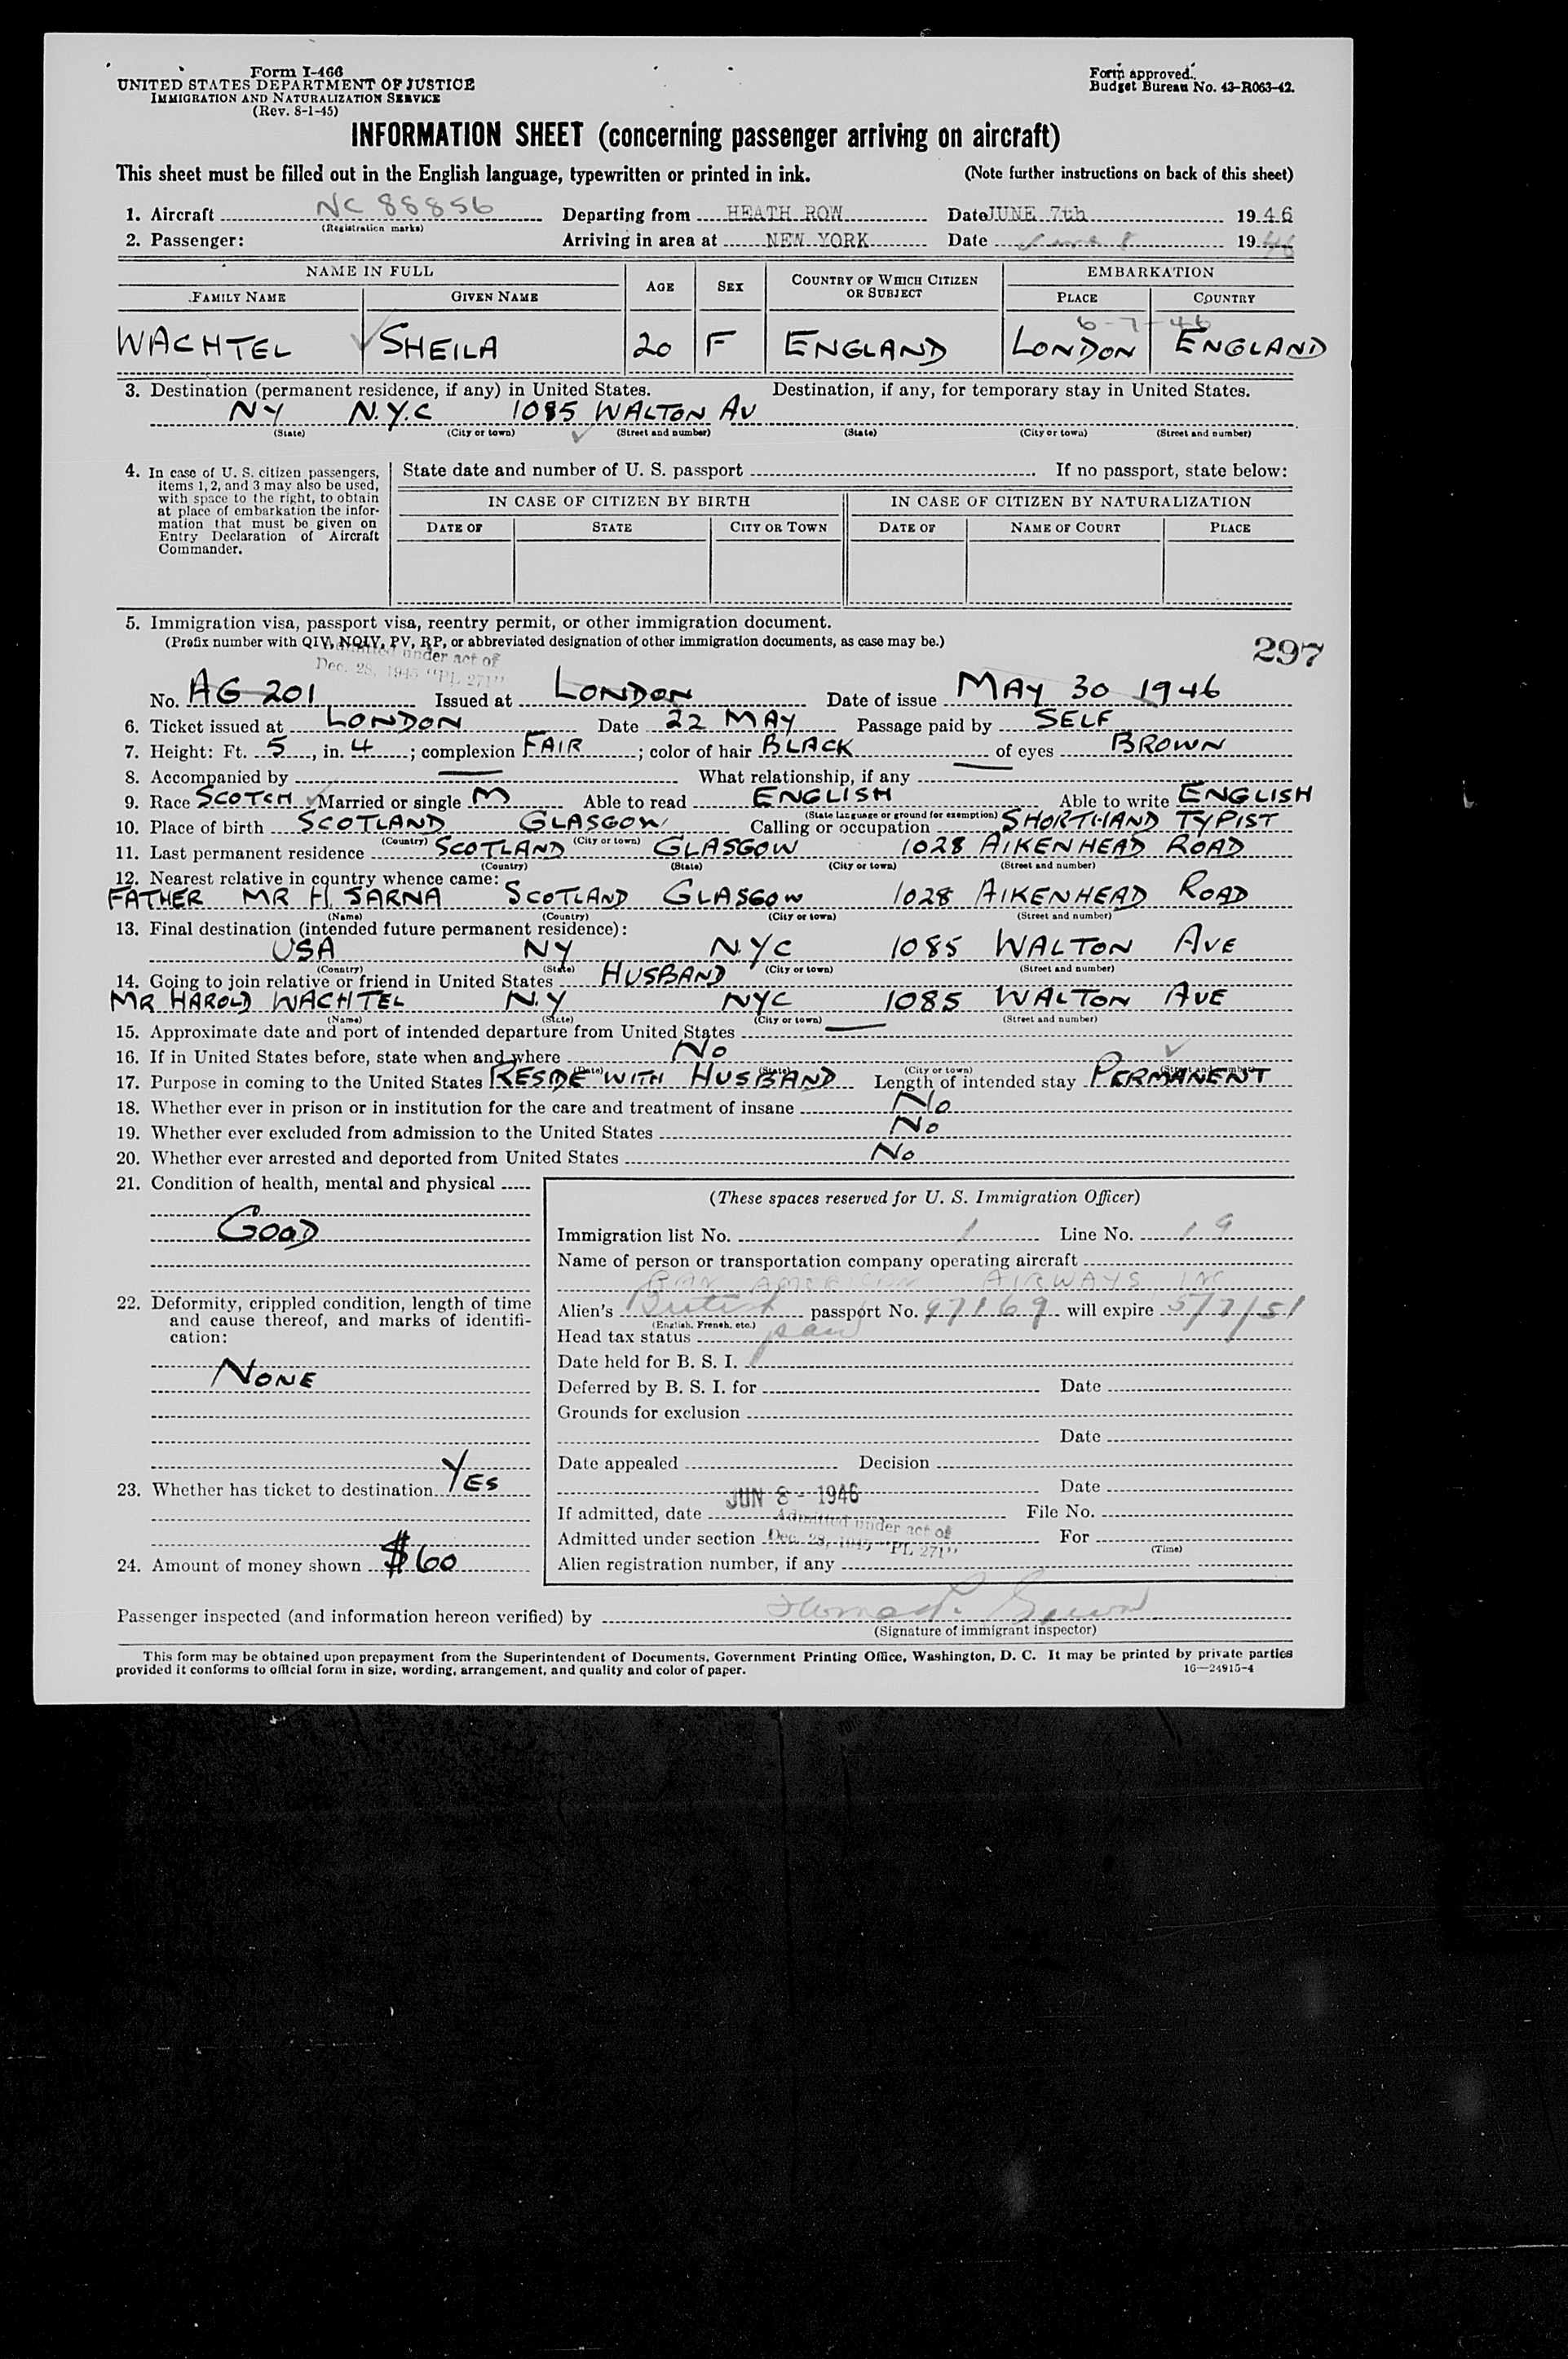 Form I-466
UNITED STATES DEPARTMENT OF JUSTICE
IMMIGRATION AND NATURALIZATION SERVICE
(Rev. 8-1-45)
Form approved.
Budget Bureau No. 43-R063-42.
INFORMATION SHEET (concerning passenger arriving on aircraft)
This sheet must be filled out in the English language, typewritten or printed in ink. (Note further instructions on back of this sheet)
1. Aircraft NC 88856 Departing from HEATH ROW Date JUNE 7th 1946
(Registration marks)
2. Passenger: Arriving in area at NEW YORK Date June 8 1946
NAME IN FULL AGE SEX COUNTRY OF WHICH CITIZEN OR SUBJECT EMBARKATION
FAMILY NAME GIVEN NAME PLACE COUNTRY
6-7-46
WACHTEL SHEILA 20 F ENGLAND LONDON ENGLAND
3. Destination (permanent residence, if any) in United States. Destination, if any, for temporary stay in United States.
NY N.Y.C 1085 WALTON AV
(State) (City or town) (Street and number) (State) (City or town) (Street and number)
4. In case of U. S. citizen passengers, items 1, 2, and 3 may also be used, with space to the right, to obtain at place of embarkation the information that must be given on Entry Declaration of Aircraft Commander.
State date and number of U. S. passport If no passport, state below:
IN CASE OF CITIZEN BY BIRTH IN CASE OF CITIZEN BY NATURALIZATION
DATE OF STATE CITY OR TOWN DATE OF NAME OF COURT PLACE
5. Immigration visa, passport visa, reentry permit, or other immigration document.
(Prefix number with QIV, NQIV, PV, RP, or abbreviated designation of other immigration documents, as case may be.)
297
Admitted under act of
Dec. 28, 1945 "PL 271"
No. AG 201 Issued at LONDON Date of issue MAY 30 1946
6. Ticket issued at LONDON Date 22 MAY Passage paid by SELF
7. Height: Ft. 5, in. 4; complexion FAIR; color of hair BLACK of eyes BROWN
8. Accompanied by — What relationship, if any —
9. Race SCOTCH Married or single M Able to read ENGLISH Able to write ENGLISH
(State language or ground for exemption)
10. Place of birth SCOTLAND GLASGOW Calling or occupation SHORTHAND TYPIST
(Country) (City or town)
11. Last permanent residence SCOTLAND GLASGOW 1028 AIKENHEAD ROAD
(Country) (State) (City or town) (Street and number)
12. Nearest relative in country whence came:
FATHER MR H. SARNA SCOTLAND GLASGOW 1028 AIKENHEAD ROAD
(Name) (Country) (City or town) (Street and number)
13. Final destination (intended future permanent residence):
USA NY N.Y.C 1085 WALTON AVE
(Country) (State) (City or town) (Street and number)
14. Going to join relative or friend in United States HUSBAND
MR HAROLD WACHTEL N.Y NYC 1085 WALTON AVE
(Name) (State) (City or town) (Street and number)
15. Approximate date and port of intended departure from United States —
16. If in United States before, state when and where NO
(Date) (State) (City or town) (Street and number)
17. Purpose in coming to the United States RESIDE WITH HUSBAND Length of intended stay PERMANENT
18. Whether ever in prison or in institution for the care and treatment of insane NO
19. Whether ever excluded from admission to the United States NO
20. Whether ever arrested and deported from United States NO
21. Condition of health, mental and physical
GOOD
22. Deformity, crippled condition, length of time and cause thereof, and marks of identification:
NONE
23. Whether has ticket to destination YES
24. Amount of money shown $60
(These spaces reserved for U. S. Immigration Officer)
Immigration list No. 1 Line No. 19
Name of person or transportation company operating aircraft
PAN AMERICAN AIRWAYS INC
Alien's British passport No. 97169 will expire 5/7/51
(English, French, etc.)
Head tax status paid
Date held for B. S. I.
Deferred by B. S. I. for Date
Grounds for exclusion
Date
Date appealed Decision
Date
If admitted, date JUN 8 - 1946 File No.
Admitted under section Admitted under act of Dec. 28, 1945 "PL 271" For
(Time)
Alien registration number, if any
Passenger inspected (and information hereon verified) by
(Signature of immigrant inspector)
This form may be obtained upon prepayment from the Superintendent of Documents, Government Printing Office, Washington, D. C. It may be printed by private parties
provided it conforms to official form in size, wording, arrangement, and quality and color of paper. 16—24915-4